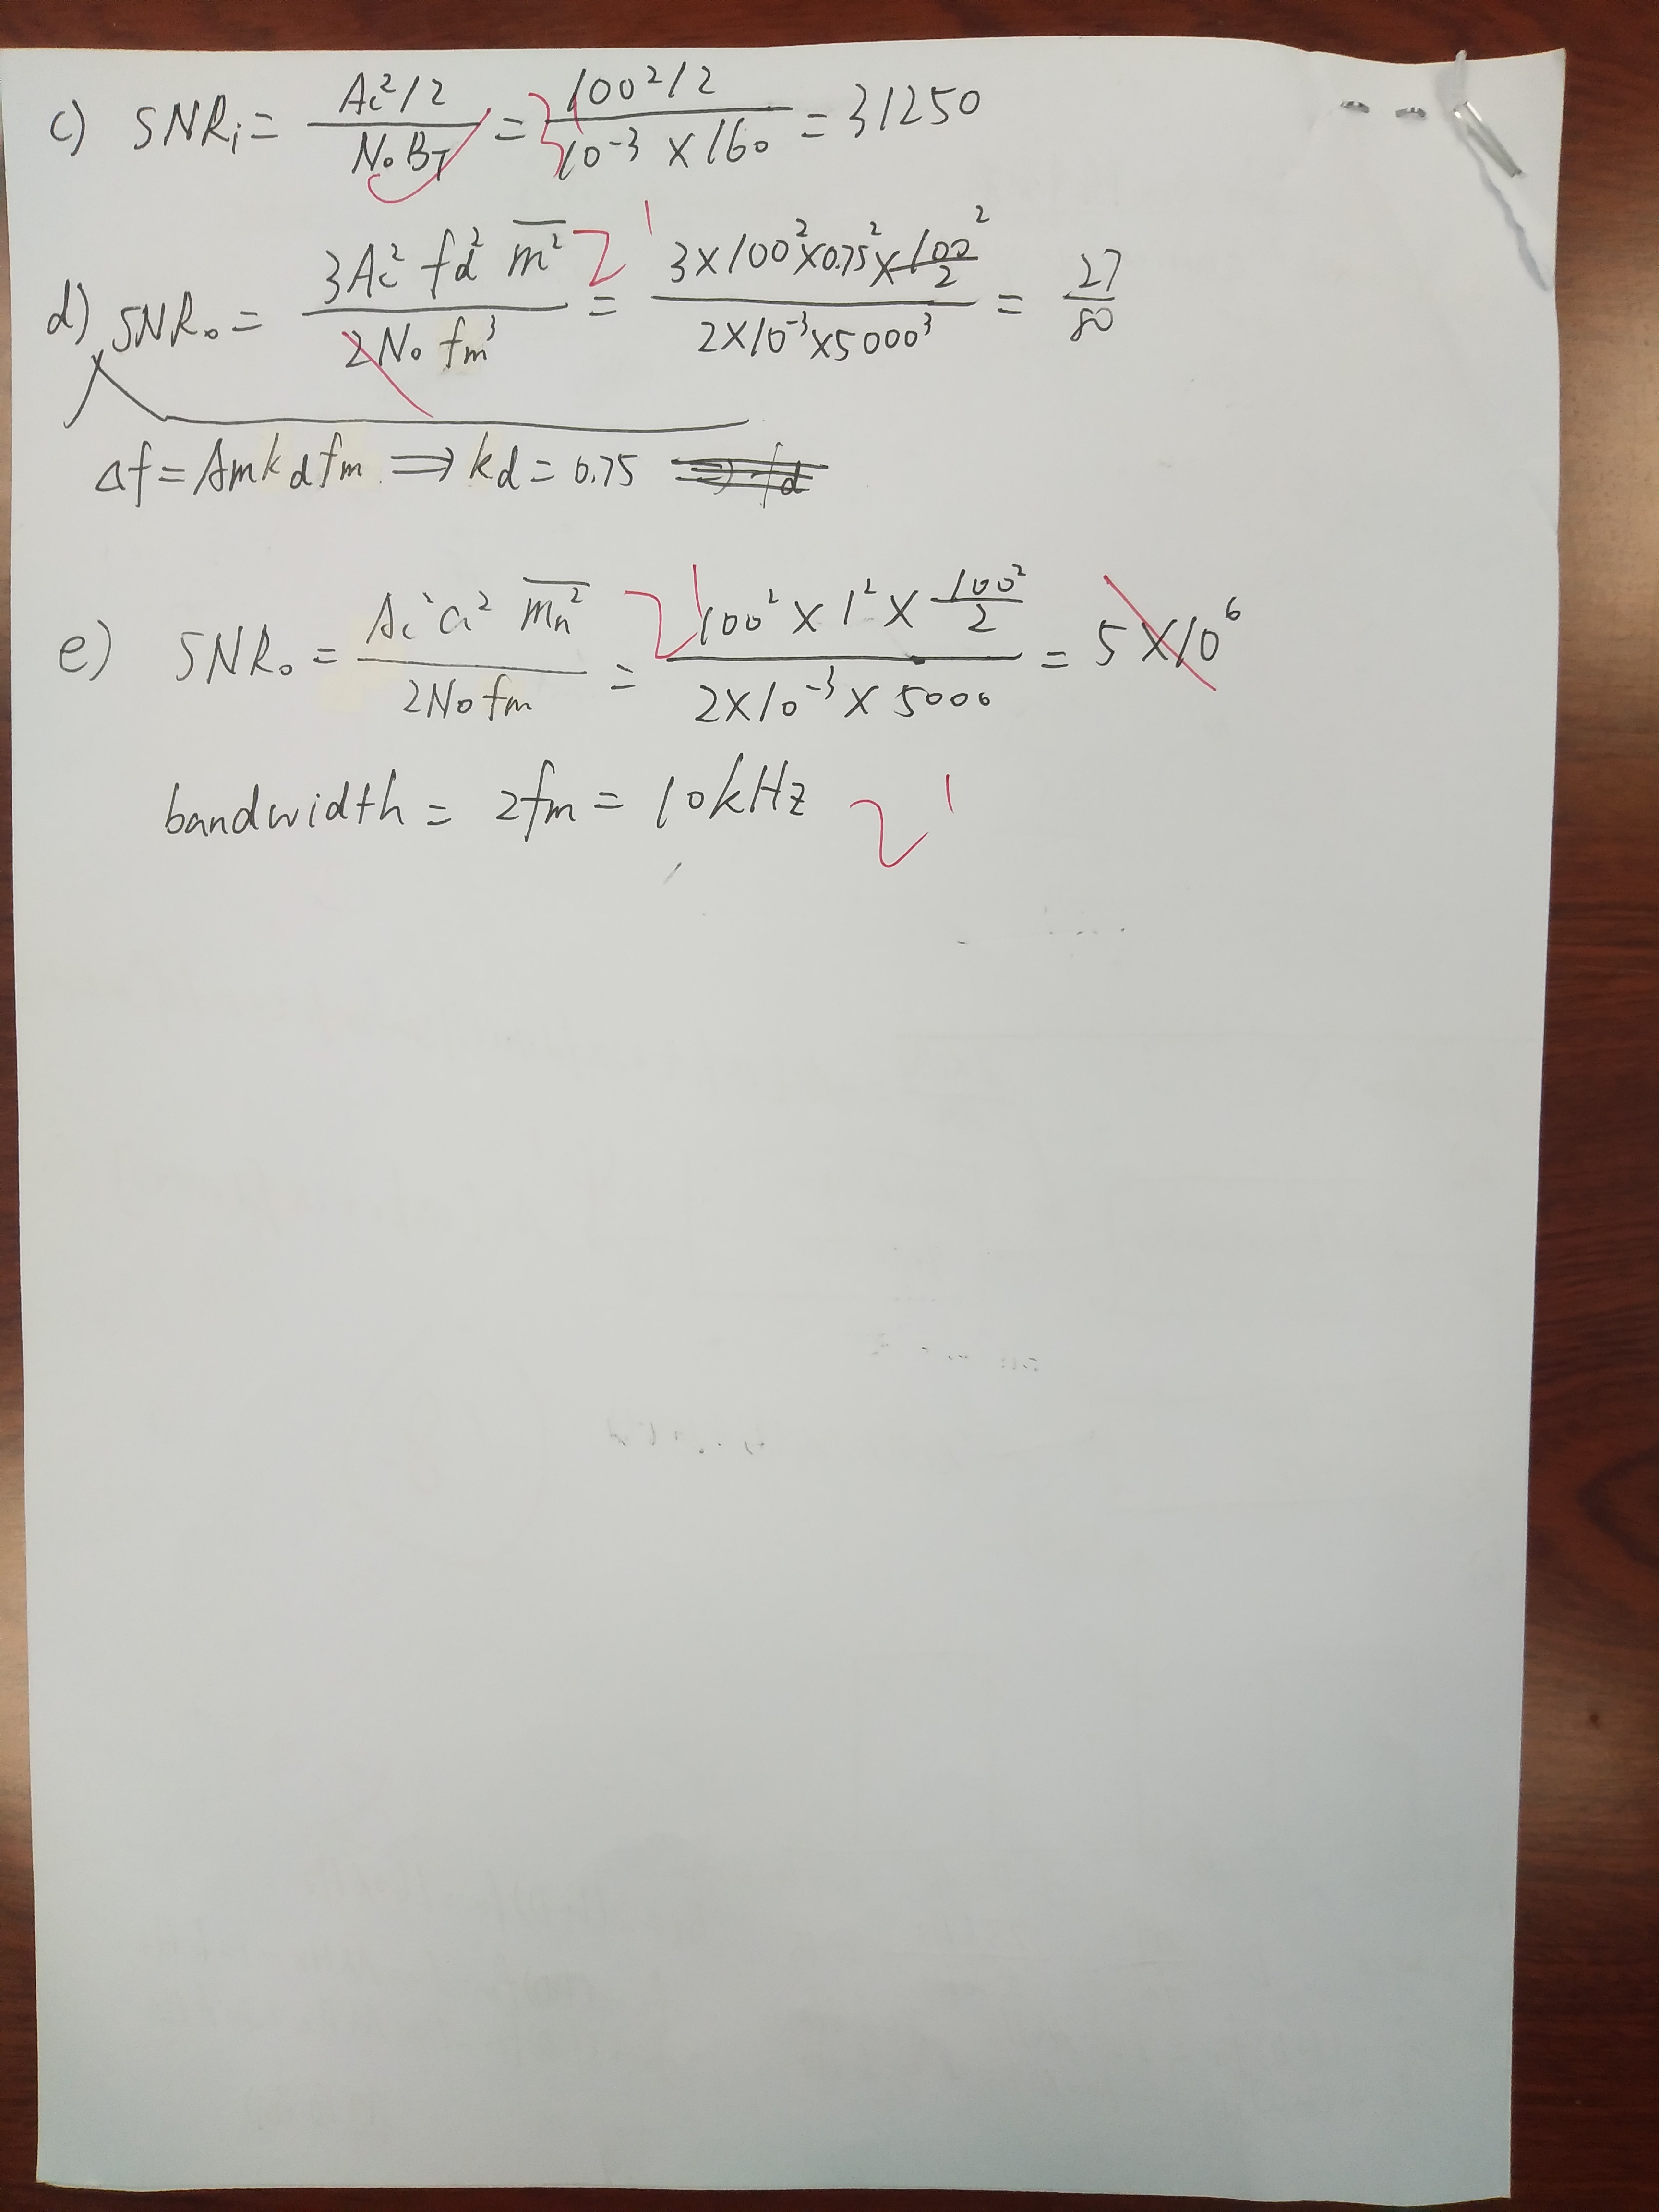 c) SNRi = Ac²/2 / N₀BT = 100²/2 / 10⁻³ × 160 = 31250
d) SNR₀ = 3Ac² fd² m̅²̅ / 2N₀ fm³ = 3×100²×0.75²×100²/2 / 2×10⁻³×5000³ = 27/80
Δf = Am kd fm ⟹ kd = 0.75
e) SNR₀ = Ac² a² m̅n̅²̅ / 2N₀ fm = 100² × 1² × 100²/2 / 2×10⁻³ × 5000 = 5×10⁶
bandwidth = 2fm = 10kHz